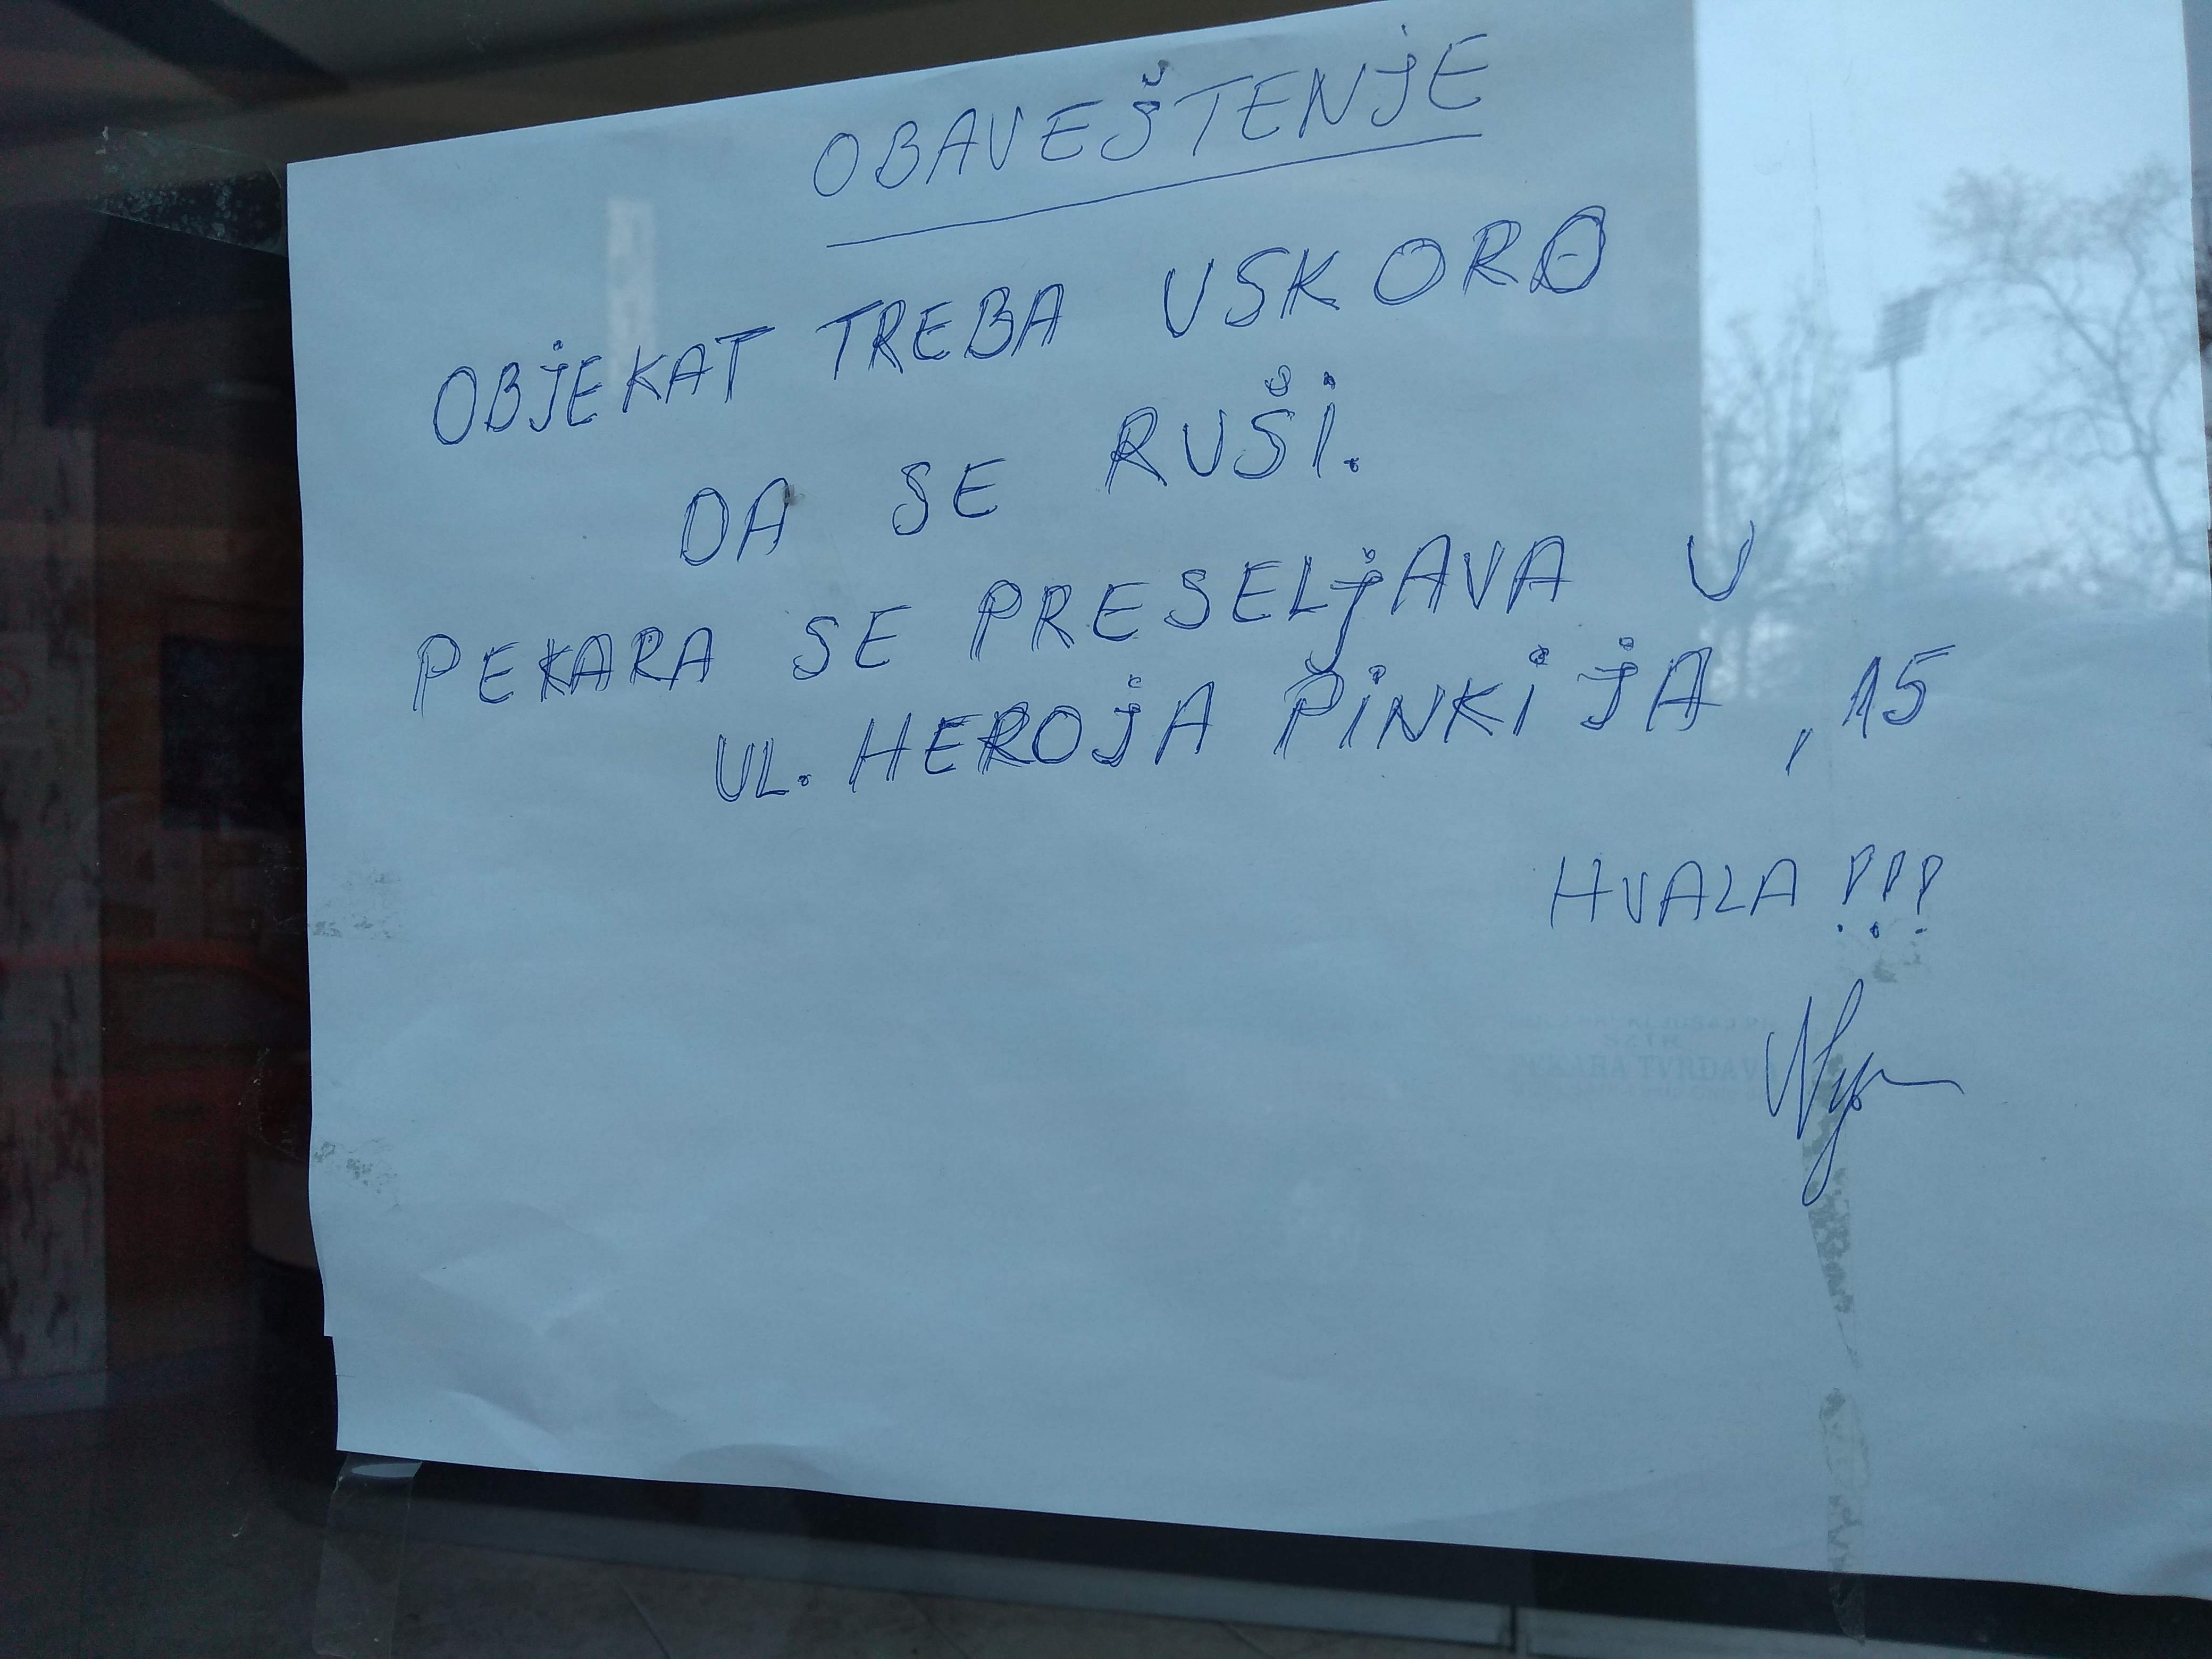 OBAVEŠTENJE
OBJEKAT TREBA USKORO
DA SE RUŠI.
PEKARA SE PRESELJAVA U
UL. HEROJA PINKIJA, 15
HVALA !!!
PEKARA TVRĐAVA